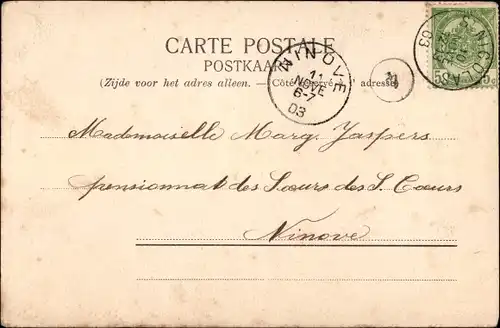 CARTE POSTALE
POSTKAART
(Zijde voor het adres alleen. — Côté réservé à l'adresse)
NINOVE
11
NOVE
6-7
03
S NICOLAS
03
5c 5c
Mademoiselle Marg. Jaspers
pensionnat des Sœurs des S. Cœurs
Ninove